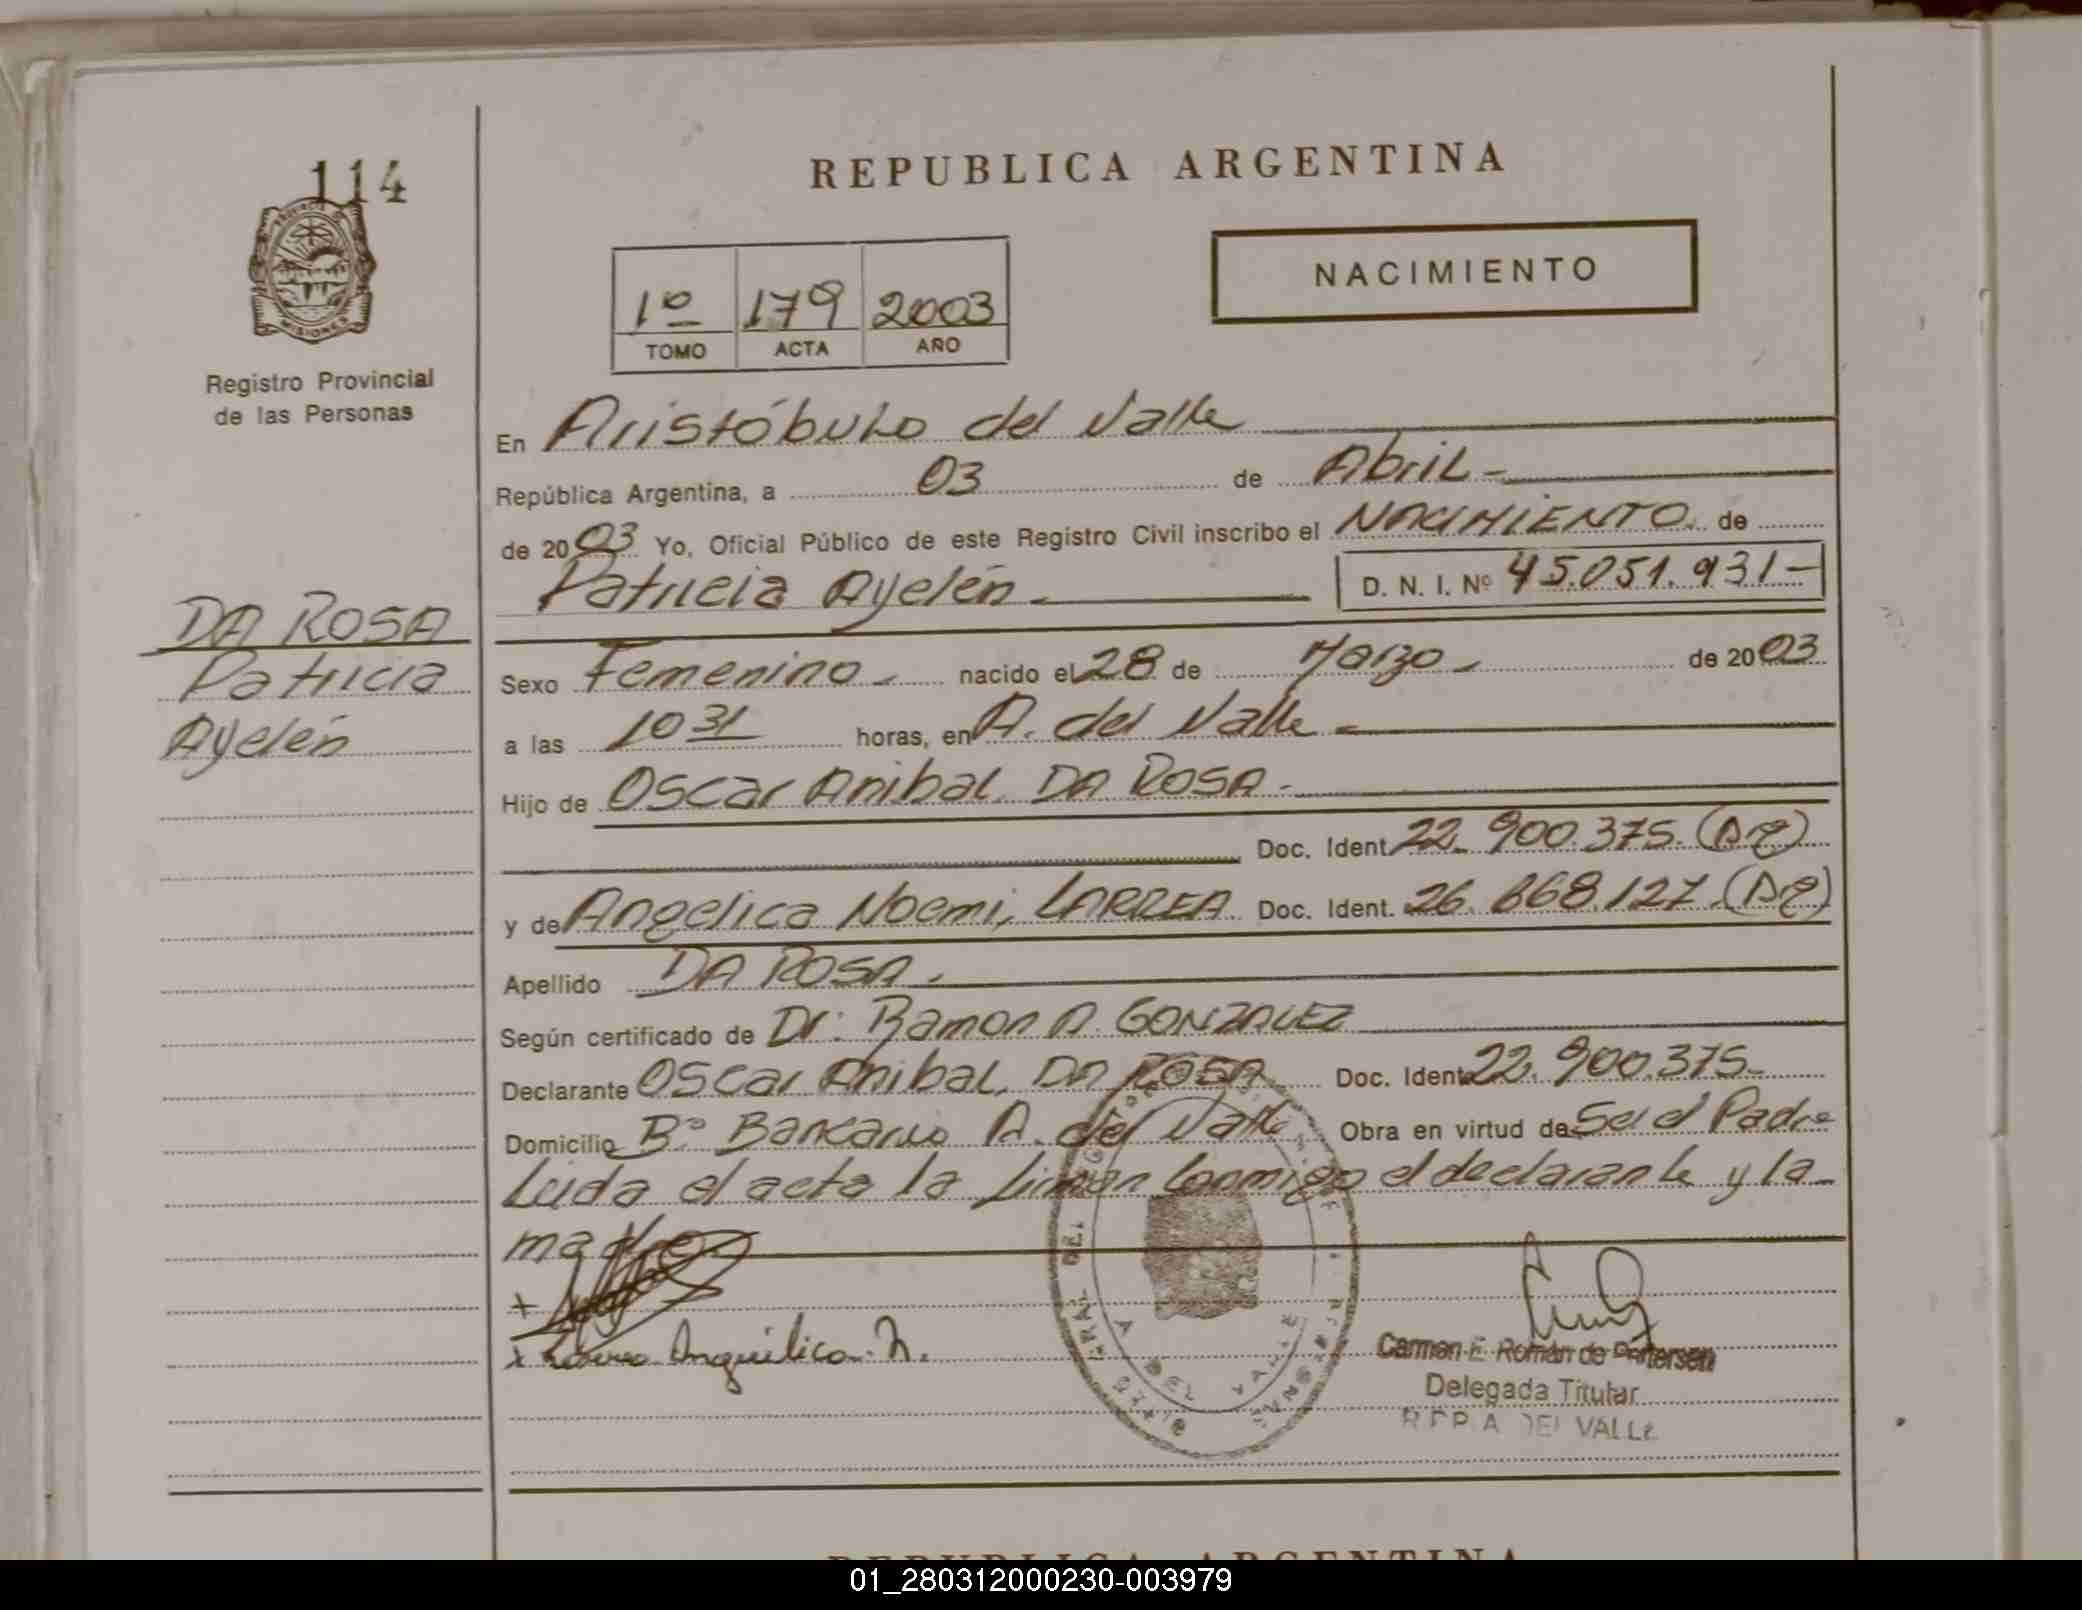 114
PROVINCIA D
MISIONES
Registro Provincial
de las Personas
REPUBLICA ARGENTINA
1º 179 2003
TOMO ACTA AÑO
NACIMIENTO
En Aristóbulo del Valle
República Argentina, a 03 de Abril -
de 2003 Yo, Oficial Público de este Registro Civil inscribo el NACIMIENTO. de
Patricia Ayelén - D. N. I. Nº 45.051.931-
DA ROSA
Patricia
Ayelén
Sexo Femenino - nacido el 28 de Marzo - de 2003
a las 10 31 horas, en A. del Valle -
Hijo de Oscar Anibal DA ROSA -
Doc. Ident. 22.900.375. (Arg)
y de Angelica Noemi, LARREA Doc. Ident. 26.868.127. (Arg)
Apellido DA ROSA.
Según certificado de Dr: Ramon A. GONZALEZ
Declarante Oscar Anibal, DA ROSA Doc. Ident. 22.900.375-
Domicilio Bº Bancario A. del Valle Obra en virtud de Ser el Padre
Leida el acta la firman Conmigo el declarante y la
madre
+
x Angélica. N.
A DEL VALLE
Carmen E. Román de Petersen
Delegada Titular
R.P.P. A DEL VALLE
REPUBLICA ARGENTINA
01_280312000230-003979